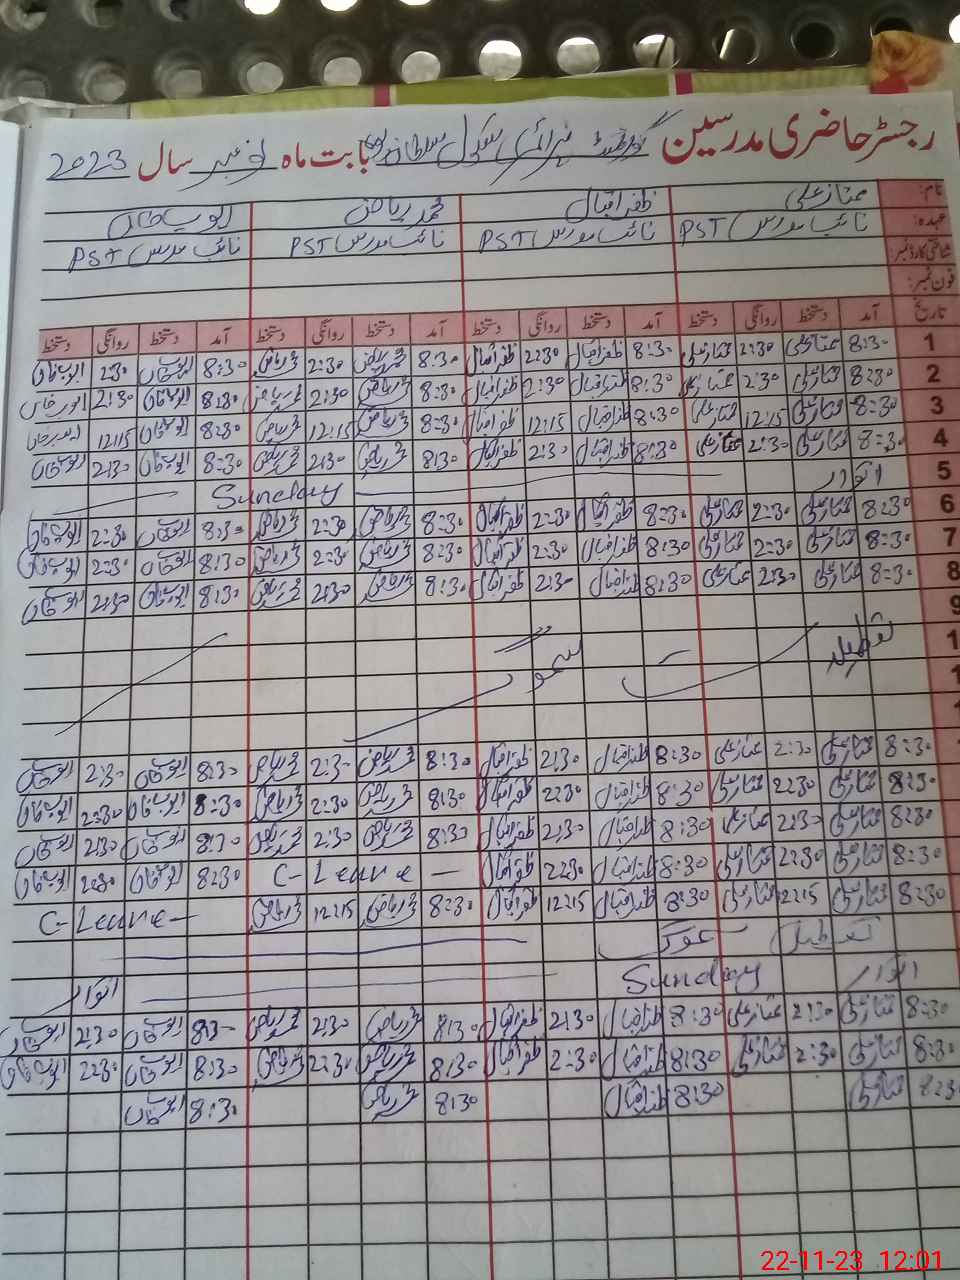 رجسٹر حاضری مدرسین گورنمنٹ پرائمری سکول سلطان بابت ماہ نومبر سال 2023
نام: ممتاز علی ظفر اقبال محمد ریاض ایوب خان
عہدہ: نائب مدرس PST نائب مدرس PST نائب مدرس PST نائب مدرس PST
شناختی کارڈ نمبر:
فون نمبر:
تاریخ آمد دستخط روانگی دستخط آمد دستخط روانگی دستخط آمد دستخط روانگی دستخط آمد دستخط روانگی دستخط
1 8:30 ممتاز علی 2:30 ممتاز علی 8:30 ظفر اقبال 2:30 ظفر اقبال 8:30 محمد ریاض 2:30 محمد ریاض 8:30 ایوب خان 2:30 ایوب خان
2 8:30 ممتاز علی 2:30 ممتاز علی 8:30 ظفر اقبال 2:30 ظفر اقبال 8:30 محمد ریاض 2:30 محمد ریاض 8:30 ایوب خان 2:30 ایوب خان
3 8:30 ممتاز علی 12:15 ممتاز علی 8:30 ظفر اقبال 12:15 ظفر اقبال 8:30 محمد ریاض 12:15 محمد ریاض 8:30 ایوب خان 12:15 ایوب خان
4 8:30 ممتاز علی 2:30 ممتاز علی 8:30 ظفر اقبال 2:30 ظفر اقبال 8:30 محمد ریاض 2:30 محمد ریاض 8:30 ایوب خان 2:30 ایوب خان
5 اتوار Sunday
6 8:30 ممتاز علی 2:30 ممتاز علی 8:30 ظفر اقبال 2:30 ظفر اقبال 8:30 محمد ریاض 2:30 محمد ریاض 8:30 ایوب خان 2:30 ایوب خان
7 8:30 ممتاز علی 2:30 ممتاز علی 8:30 ظفر اقبال 2:30 ظفر اقبال 8:30 محمد ریاض 2:30 محمد ریاض 8:30 ایوب خان 2:30 ایوب خان
8 8:30 ممتاز علی 2:30 ممتاز علی 8:30 ظفر اقبال 2:30 ظفر اقبال 8:30 محمد ریاض 2:30 محمد ریاض 8:30 ایوب خان 2:30 ایوب خان
9
1 تعطیل سموگ
1
1
8:30 ممتاز علی 2:30 ممتاز علی 8:30 ظفر اقبال 2:30 ظفر اقبال 8:30 محمد ریاض 2:30 محمد ریاض 8:30 ایوب خان 2:30 ایوب خان
8:30 ممتاز علی 2:30 ممتاز علی 8:30 ظفر اقبال 2:30 ظفر اقبال 8:30 محمد ریاض 2:30 محمد ریاض 8:30 ایوب خان 2:30 ایوب خان
8:30 ممتاز علی 2:30 ممتاز علی 8:30 ظفر اقبال 2:30 ظفر اقبال 8:30 محمد ریاض 2:30 محمد ریاض 8:30 ایوب خان 2:30 ایوب خان
8:30 ممتاز علی 2:30 ممتاز علی 8:30 ظفر اقبال 2:30 ظفر اقبال C-Leave 8:30 ایوب خان 2:30 ایوب خان
8:30 ممتاز علی 12:15 ممتاز علی 8:30 ظفر اقبال 12:15 ظفر اقبال 8:30 محمد ریاض 12:15 محمد ریاض C-Leave
تعطیل سموگ
اتوار Sunday اتوار
8:30 ممتاز علی 2:30 ممتاز علی 8:30 ظفر اقبال 2:30 ظفر اقبال 8:30 محمد ریاض 2:30 محمد ریاض 8:30 ایوب خان 2:30 ایوب خان
8:30 ممتاز علی 2:30 ممتاز علی 8:30 ظفر اقبال 2:30 ظفر اقبال 8:30 محمد ریاض 2:30 محمد ریاض 8:30 ایوب خان 2:30 ایوب خان
8:30 ممتاز علی 8:30 ظفر اقبال 8:30 محمد ریاض 8:30 ایوب خان
22-11-23 12:01